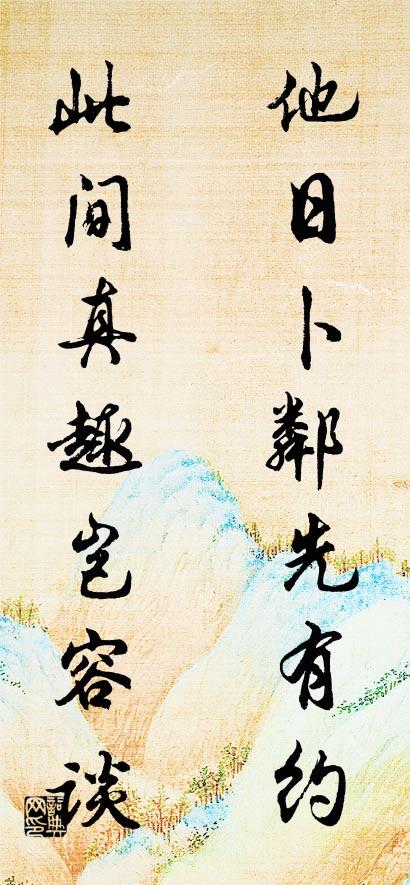 他日卜鄰先有约
此间真趣岂容谈